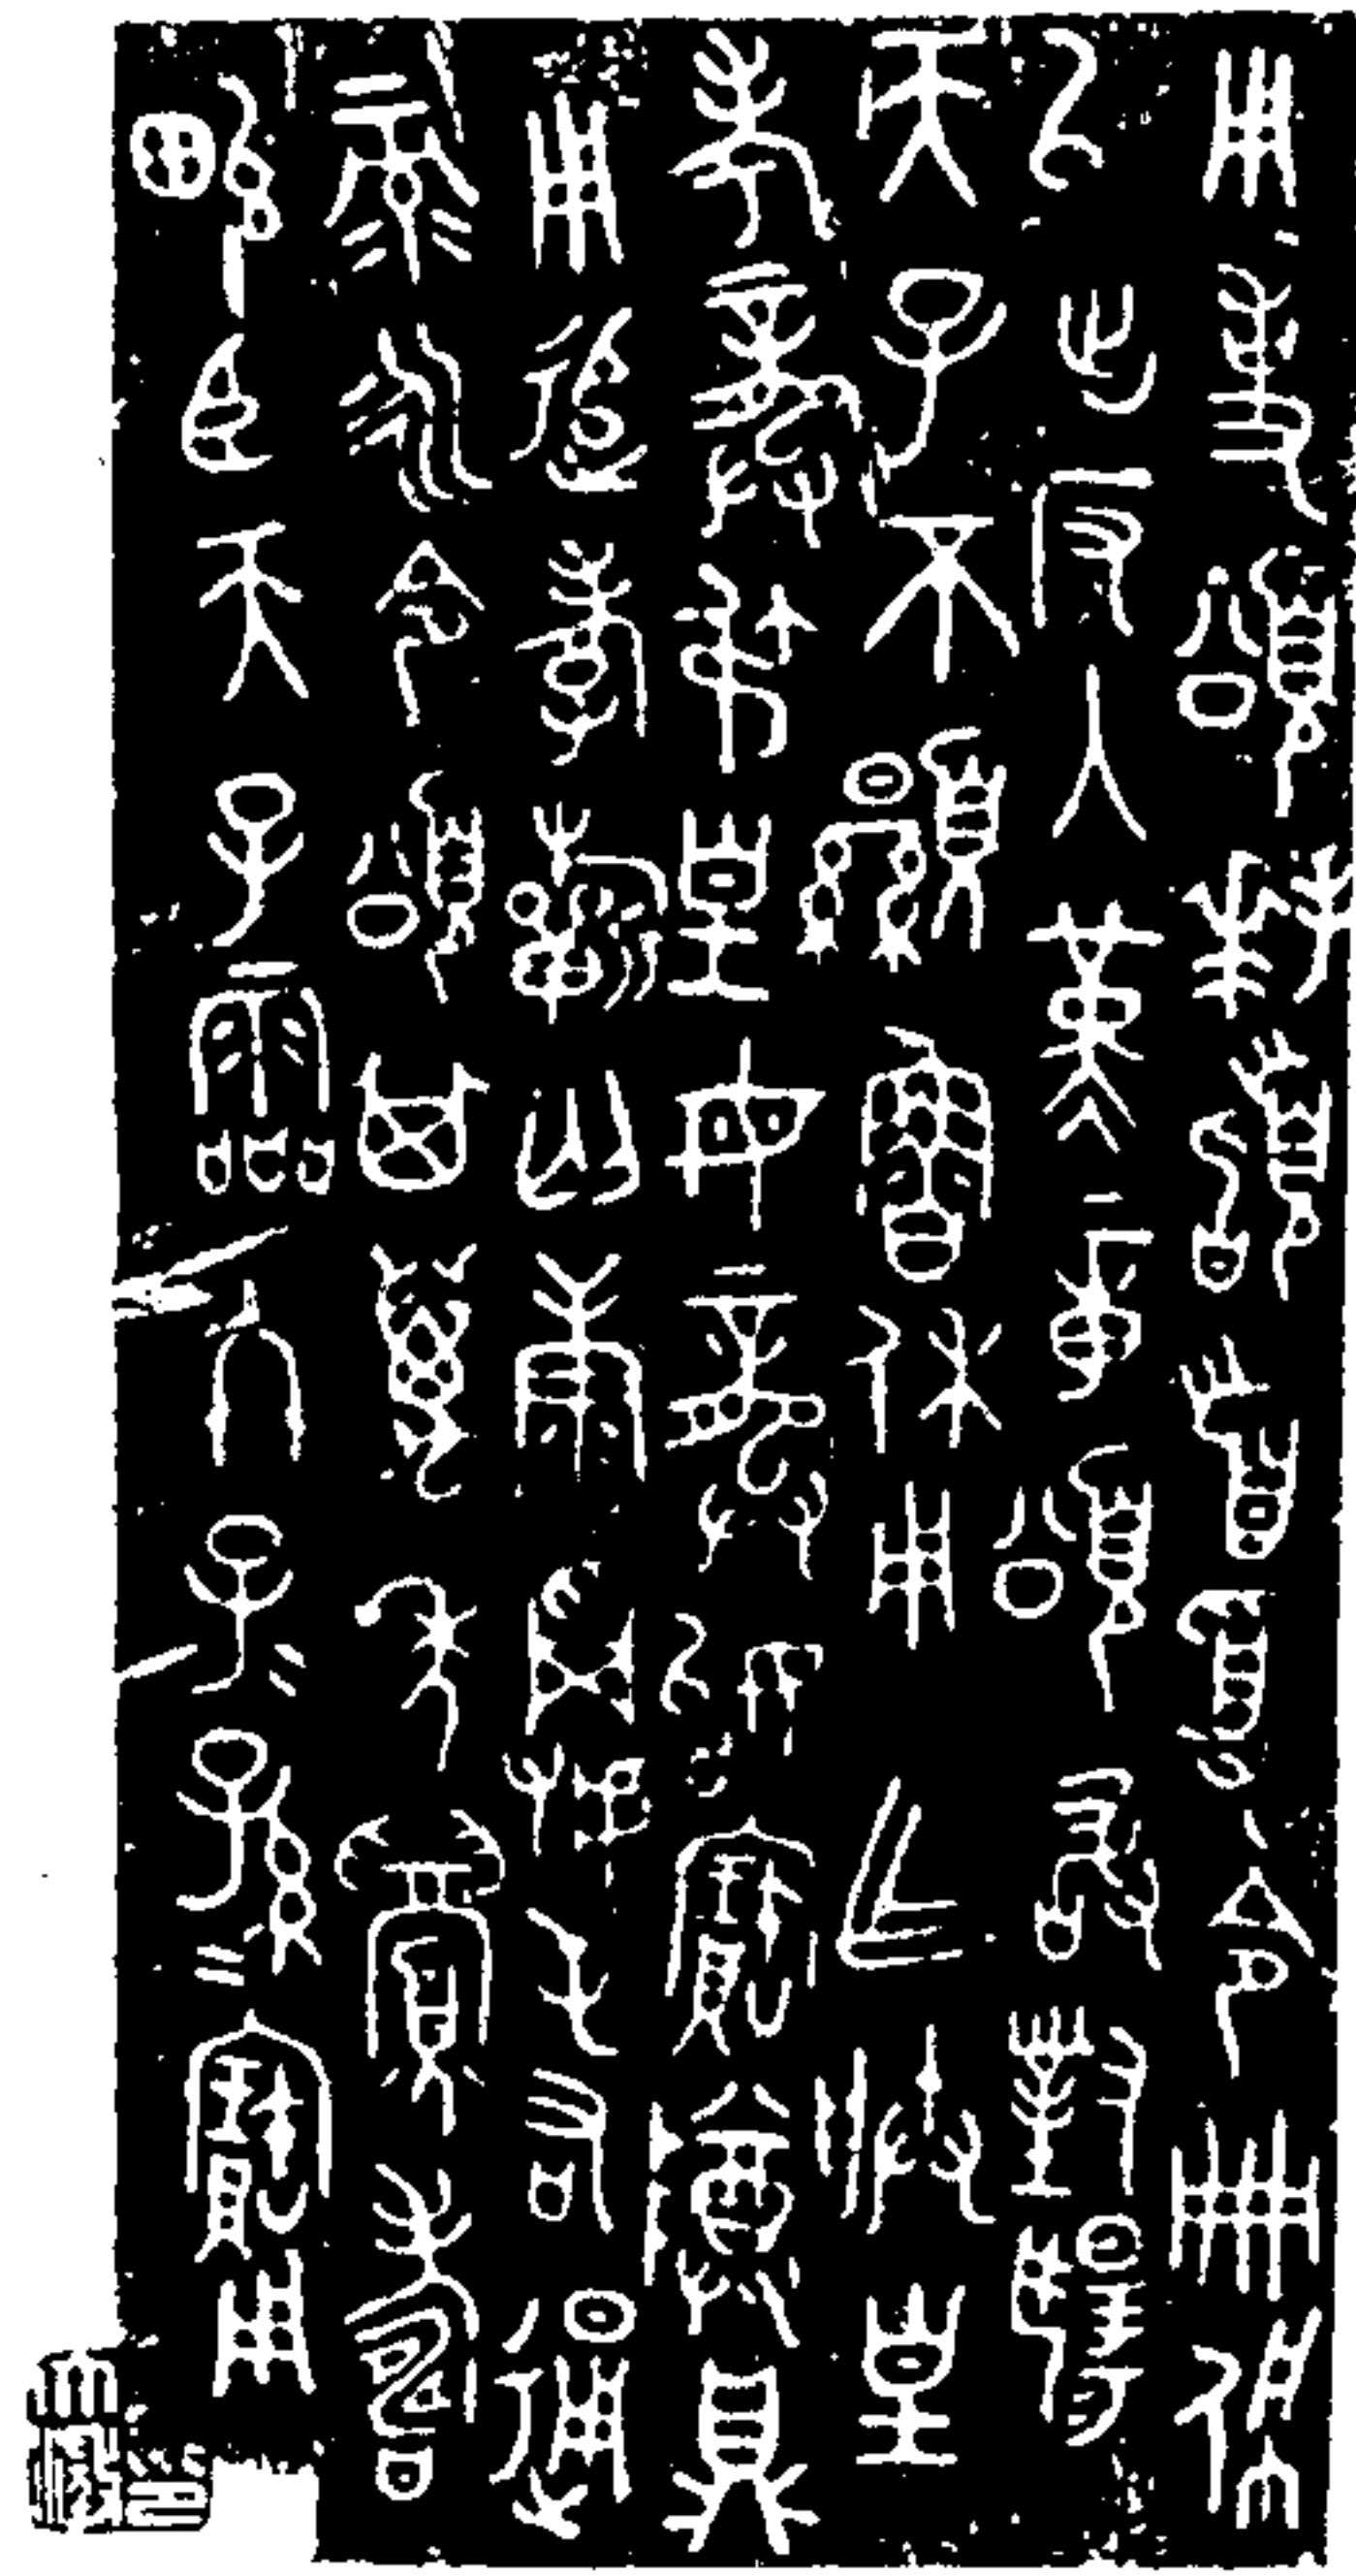 用事頌拜𩒨首受令冊佩
㠯出反入堇章頌敢對揚
天子不顯魯休用乍朕皇
考龏弔皇母龏始寶尊鼎
用追孝𣄨匄康𠭯屯右通
彔永令頌其萬年眉壽
畯臣天子霝冬子=孫=寶用